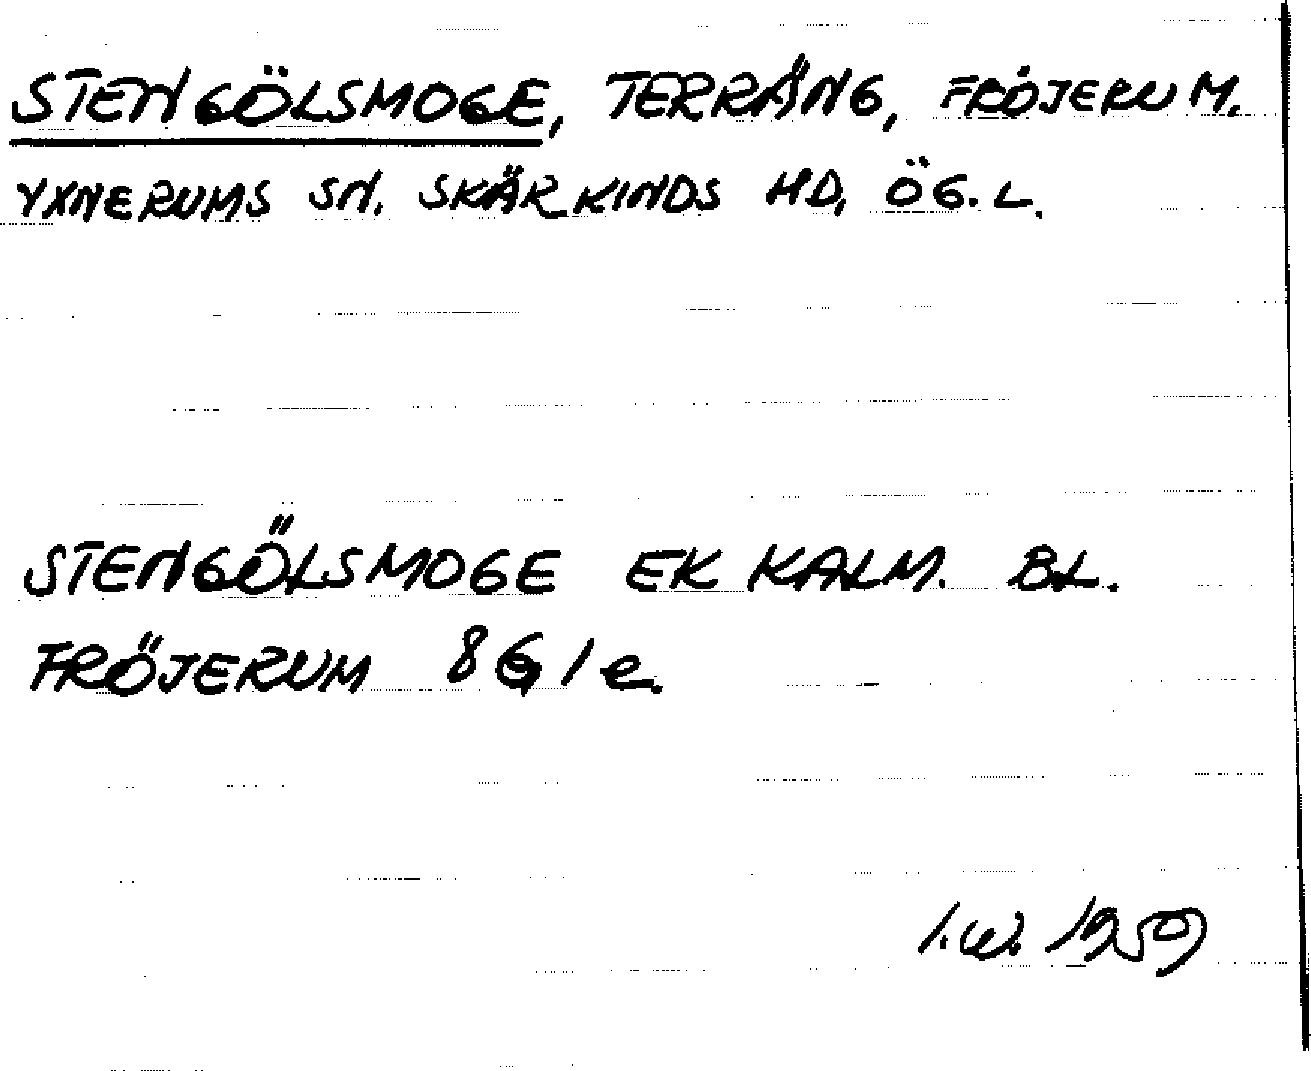 STENGÖLSMOGE, TERRÄNG, FRÖJERUM.
YXNERUMS SN. SKÄRKINDS HD, ÖG. L.
STENGÖLSMOGE EK KALM. BL.
FRÖJERUM 8G1e.
I.W. 1959